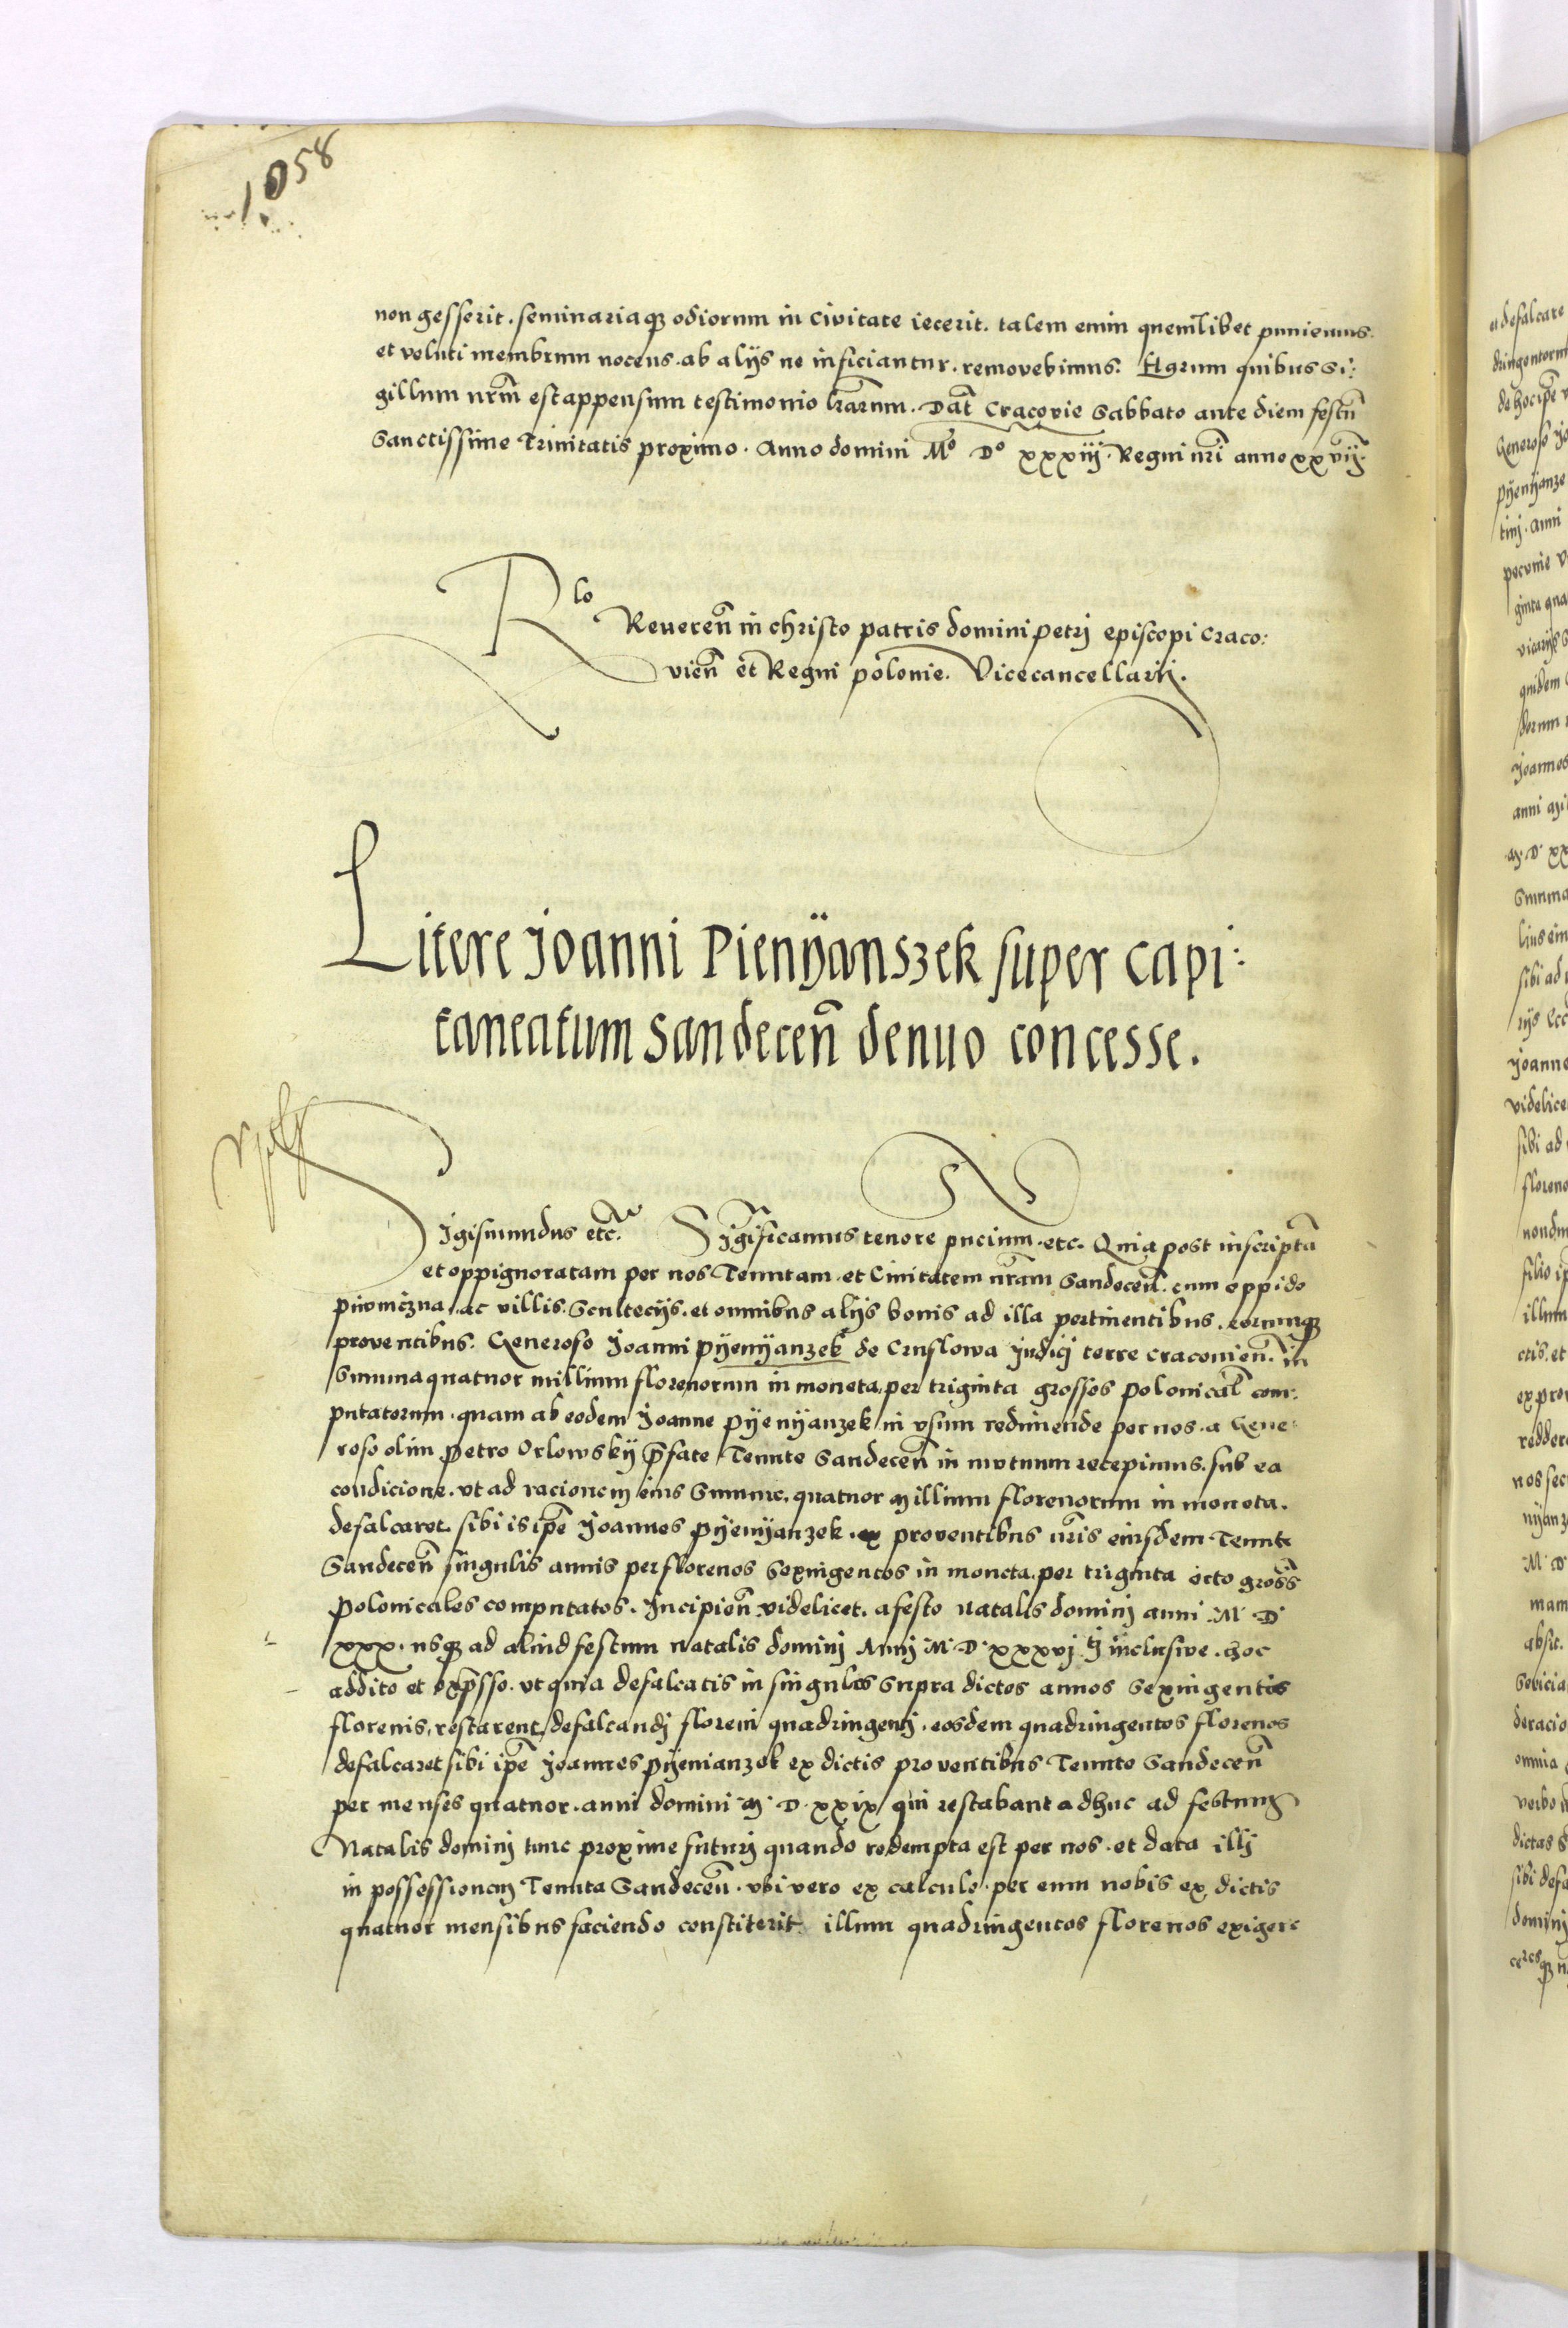 1058
non gesserit. seminariaqȝ odiorum in civitate iecerit. talem enim quemlibet puniemus.
et veluti membrum nocens. ab aliis ne inficiantur. removebimus. Harum quibus si:
gillum nrm̄ est appensum testimonio lr̄arum. Dat̄ Cracovie Sabbato ante diem festū
Sanctissime Trinitatis proximo. Anno domini Mº Dº xxxiij. Regni nr̄i anno xxvij.
Rlo
Reveren̄ in christo patris domini petrj episcopi Craco:
vien̄ et Regni polonie. Vicecancellarij.
Litere Joanni Pienÿanszek super Capi:
taneatum Sandecen̄ denuo concesse.
Sigismundus etc̄. Significamus tenore pn̄cium. etc. Quia post inscriptā
et oppignoratam per nos Tenutam. et Civitatem nr̄am Sandecen̄. cum oppido
piwniczna. ac villis. Scultecijs. et omnibus alijs bonis ad illa pertinentibus. eorumqȝ
proventibus. Generoso Joanni pÿenÿanzek de Cruslowa Judicj terre cracovien̄. in
Summa quatuor millium florenorum in moneta, per triginta grossos polonical̄ com:
putatorum. quam ab eodem Joanne pÿenÿanzek in usum redimende per nos. a Gene:
roso olim petro Orlowskÿ p̄fate Tenute Sandecen̄ in mutuum recepimus. sub ea
condicione. ut ad racionem eius Summe. quatuor millium florenorum in moneta.
defalcaret. sibi is ip̄e Joannes pÿenÿanzek. ex proventibus nr̄is eiusdem Tenute
Sandecen̄ singulis annis per florenos Sexingentos in moneta. per triginta octo gross̄
polonicales computatos. Incipien̄. videlicet. a festo natalis dominj anni. M. D.
xxx. usqȝ ad aliud festum natalis dominj Annj M. D. xxxvj. inclusive. hoc
addito et exp̄sso. ut quia defalcatis in singulos supra dictos annos Sexingentis
florenis, restarent, defalcandj floreni quadringentj. eosdem quadringentos florenos
defalcaret sibi ip̄e Joannes pÿenianzek ex dictis proventibus Tenute Sandecen̄
per menses quatuor. anni domini M. D. xxix qui restabant adhuc ad festum
Natalis dominj tunc proxime futurj quando redempta est per nos. et data illj
in possessionem Tenuta Sandecen̄. ubi vero ex calculo. per eum nobis ex dictis
quatuor mensibus faciendo constiterit. illum quadringentos florenos exigere